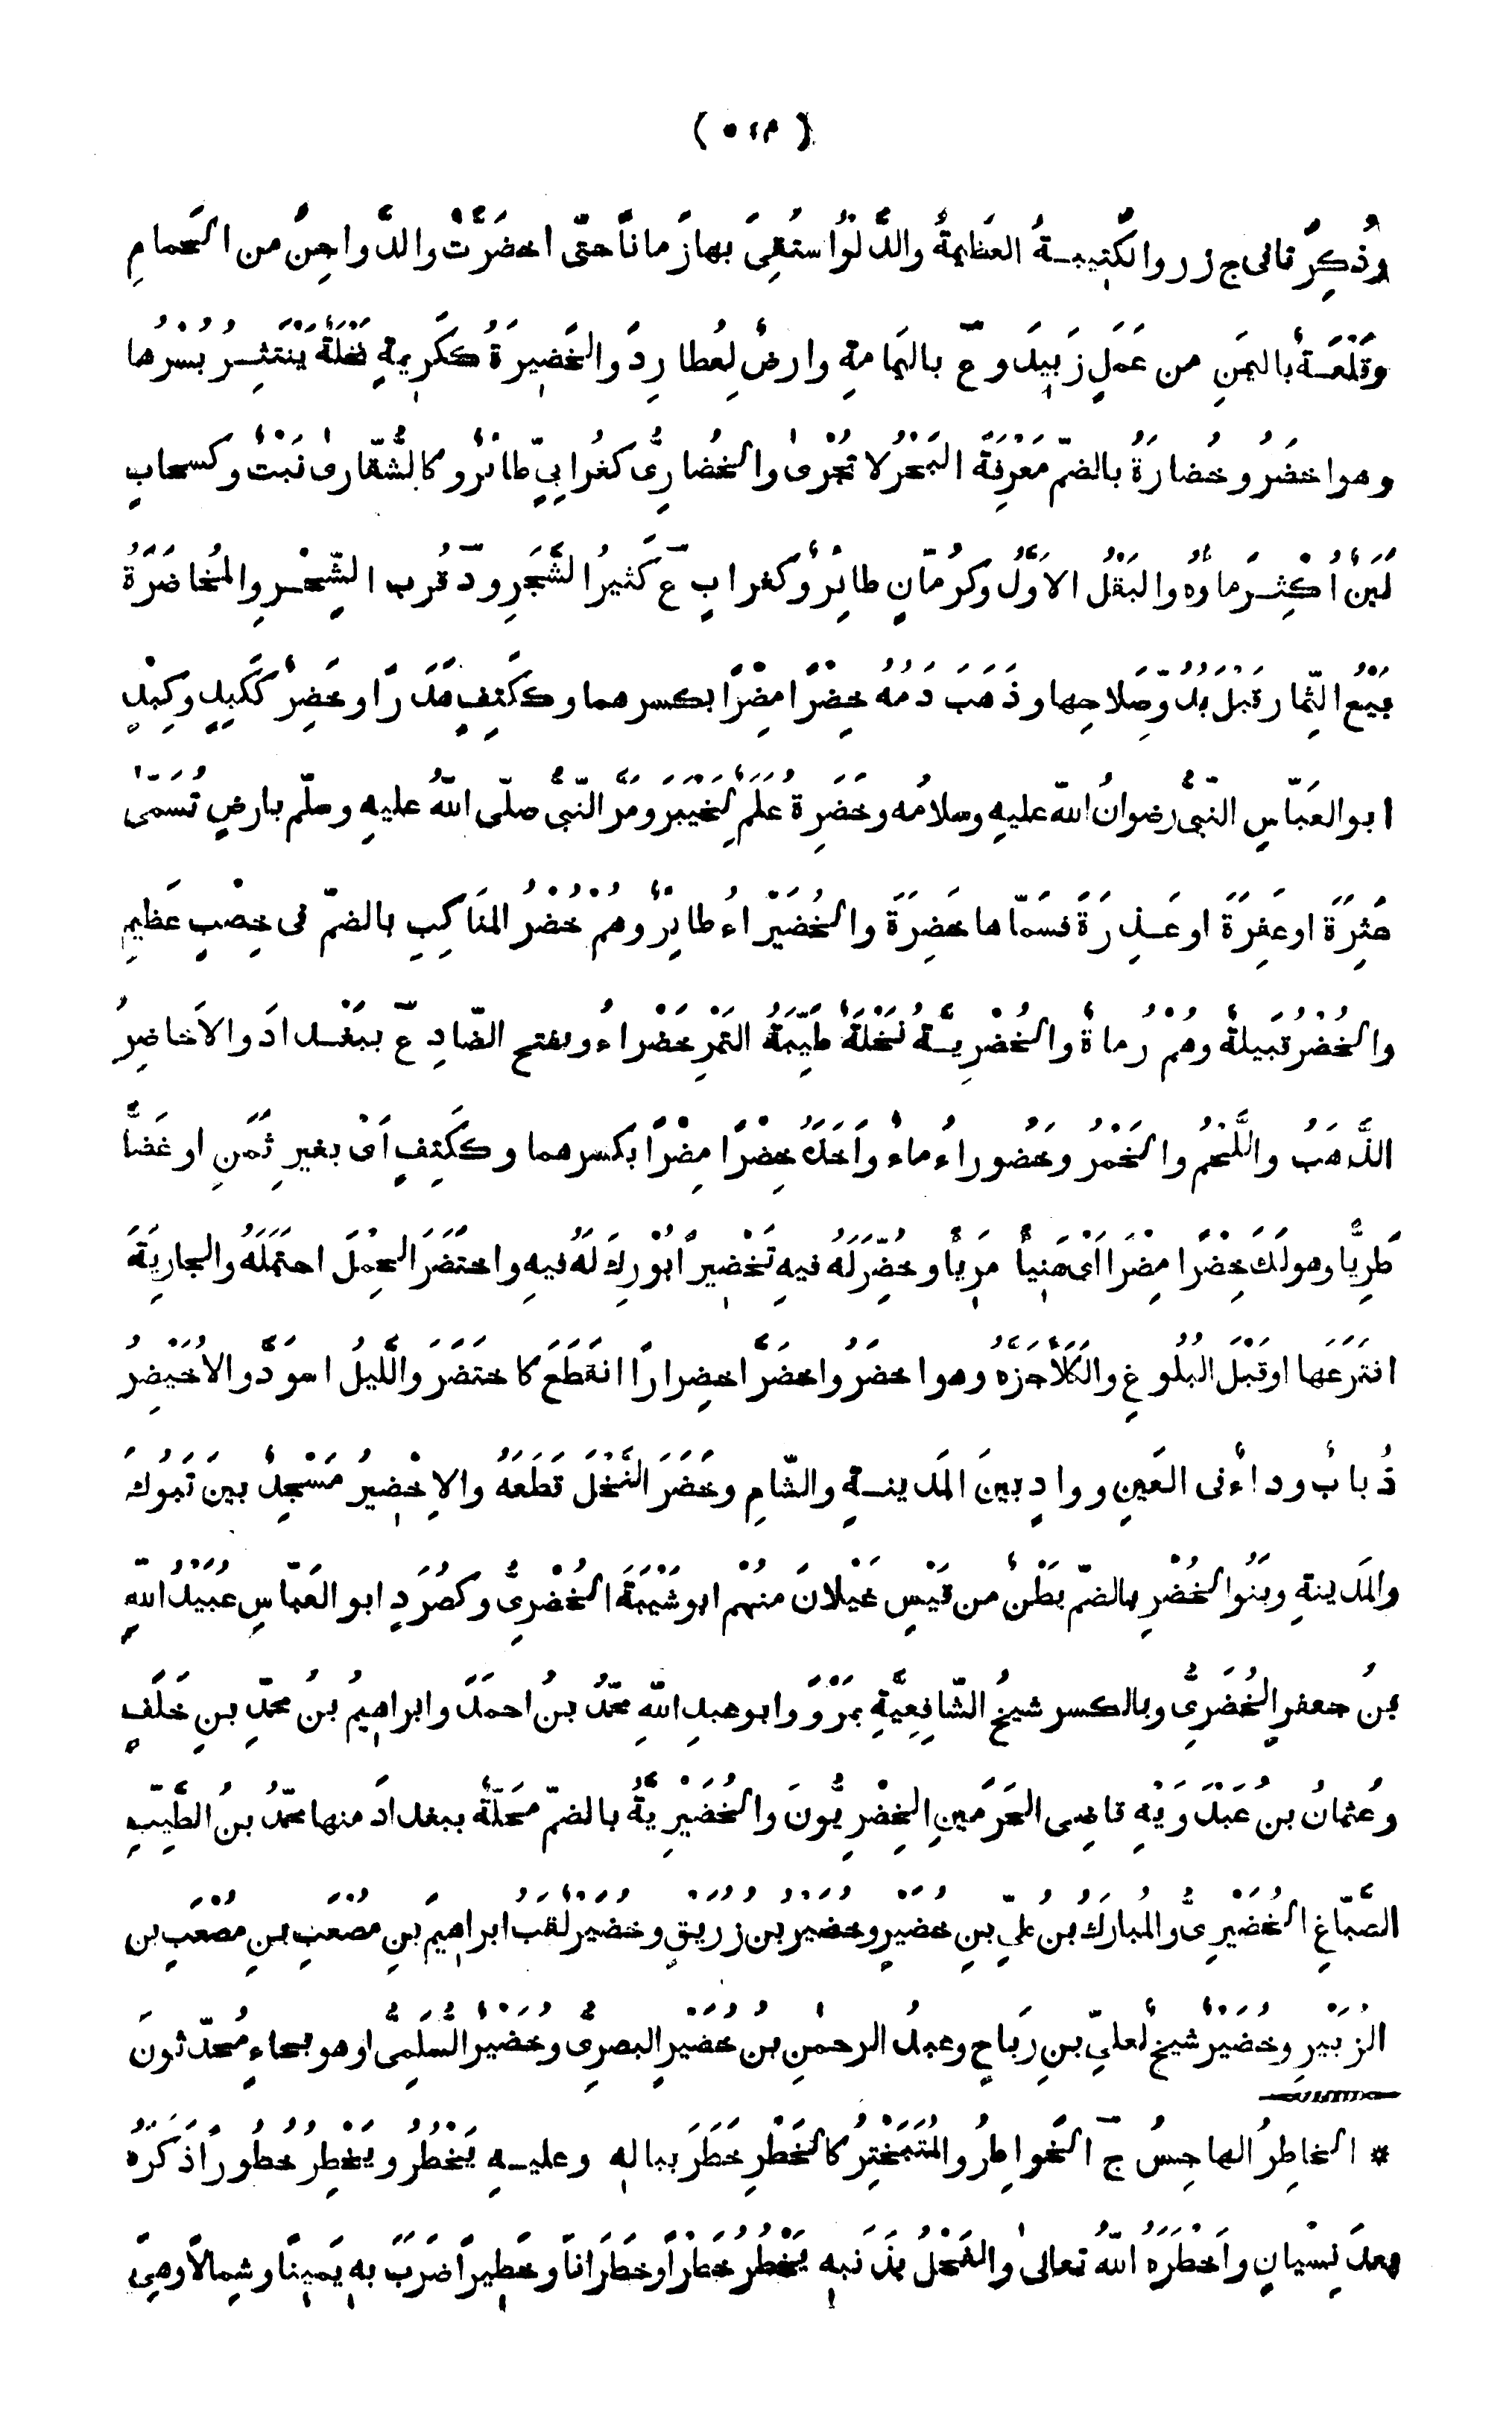 ( ٥٤٣ )
وذُكِرَتا فى ج ز ر والكَتيبةُ العَظيمةُ والدَّلْوُ استُقِىَ بها زَماناً حتّى اخضَرَّتْ والدَّواجِنُ من الحَمامِ
وقَلْعَةٌ باليَمَنِ من عَمَلِ زَبِيدَ وع باليَمامةِ وارضٌ لِعُطارِدَ والخَضِيرَةُ كَكَرِيمةٍ نَخْلَةٌ يَنْتَثِرُ بُسْرُها
وهو اخضَرُ وخُضارَةُ بالضمّ مَعْرِفَةً البَحْرُ لا تُجْرىٰ والخُضارِىُّ كغُرابِىٍّ طائرٌ وكالشُّقّارىٰ نَبْتٌ وكسحابٍ
لَبَنٌ اُكْثِرَ ماؤُه والبَقْلُ الاَوَّلُ وكرُمّانٍ طائِرٌ وكغرابٍ ع كَثيرُ الشَّجَرِ ود قُرب الشِّحْرِ والمُخاضَرَةُ
بَيْعُ الثِّمار قَبْلَ بُدُوِّ صَلاحِها وذَهَبَ دَمُهُ خِضْرًا مِضْرًا بكسرهما وككَتِفٍ هَدَرًا وخَضِرٌ ككَبِدٍ وكِبْدٍ
ابو العَبّاسِ النّبىُّ رضوانُ اللّه عليهِ وسلامُه وخَضِرة عَلَمٌ لِخَيْبَرَ ومَرَّ النّبىُّ صلّى اللّهُ عليهِ وسلّم بارضٍ تُسَمّىٰ
عَثِرَةَ او عَفِرَةَ او غَدِرَةَ فسَمّاها خَضِرَةَ والخُضَيْراءُ طائِرٌ وهُمْ خُضْرُ المَناكِبِ بالضمّ فى خِصْبٍ عَظِيمٍ
والخُضْرُ قَبيلةٌ وهُمْ رُماةٌ والخُضْرِيَّةُ نَخْلَةٌ طَيِّبَةُ التَمْرِ خَضْراءُ وبفتح الضّادِ ع ببَغْدادَ والاَخاضِرُ
الذَّهَبُ واللَّحْمُ والخَمْرُ وخَضُوراءُ ماءٌ واَخَذَه خِضْرًا مِضْرًا بكسرهما وككَتِفٍ اَىْ بغيرِ ثَمَنٍ او غَضًّا
طَرِيًّا وهو لَكَ خِضْرًا مِضْرًا اَىْ هَنِيأً مَرِيأً وخُضِّرَ لَهُ فيهِ تَخْضِيراً بُورِكَ لَهُ فيهِ واختَضَرَ الحِمْلَ احتَمَلَهُ والجاريَةَ
افتَرَعَها او قَبْلَ البُلُوغِ والكَلاَ جَزَّه وهو اخضَرُ واخضَرَّ اخضِراراً انقَطَعَ كاختَضَرَ واللَّيلُ اسوَدَّ والاُخَيْضِرُ
ذُبابٌ وداءٌ فى العَينِ ووادٍ بينَ المَدينةِ والشّامِ وخَضَرَ النَّخْلَ قَطَعَهُ والاِخْضِيرُ مَسْجِدٌ بينَ تَبُوكَ
والمَدينةِ وبَنُوا الخُضْرِ بالضمّ بَطْنٌ من قَيْسِ عَيْلانَ منهُم ابو شَيْبَةَ الخُضْرِىُّ وكصُرَدٍ ابو العَبّاسِ عُبَيْدُ اللّهِ
بنُ جعفرٍ الخُضَرِىُّ وبالكسر شيخُ الشّافِعِيَّةِ بمَرْوَ وابو عبدِ اللّهِ محمّدُ بنُ احمَدَ وابراهِيمُ بنُ محمّدِ بنِ خَلَفٍ
وعُثمانُ بنُ عَبْدَوَيْهِ قاضِى الحَرَمَينِ الخِضْرِيُّونَ والخُضَيْرِيَّةُ بالضمّ مَحَلّةٌ ببغدادَ منها محمّدُ بنُ الطَّيِّبِ
الصَّبّاغِ الخُضَيْرِىُّ والمُبارَكُ بنُ علىِّ بنِ خُضَيْرٍ وخُضَيْرُ بنُ زُرَيْقٍ وخُضَيْرٌ لقَبُ ابراهِيمَ بنِ مُصْعَبِ بنِ مُصْعَبِ بن
الزُبَيْرِ وخُضَيْرٌ شيخٌ لعلىِّ بنِ رَباحٍ وعبدُ الرحمٰنِ بنُ خُضَيْرٍ البصرىُّ وخُضَيْرٌ السُّلَمِىُّ او هو بحاءٍ مُحدّثونَ
* الخاطِرُ الهاجِسُ ج الخَواطِرُ والمُتَبَخْتِرُ كالخَطْرِ خَطَرَ ببالِهِ وعليهِ يَخْطُرُ ويَخْطِرُ خُطُوراً ذَكَرَهُ
بعدَ نِسْيانٍ واَخْطَرَهُ اللّهُ تعالىٰ والفَحْلُ بذَنَبِهِ يَخْطُرُ خَطْراً وخَطَراناً وخَطِيراً ضَرَبَ بهِ يَمِينًا وشِمالاً وهِىَ